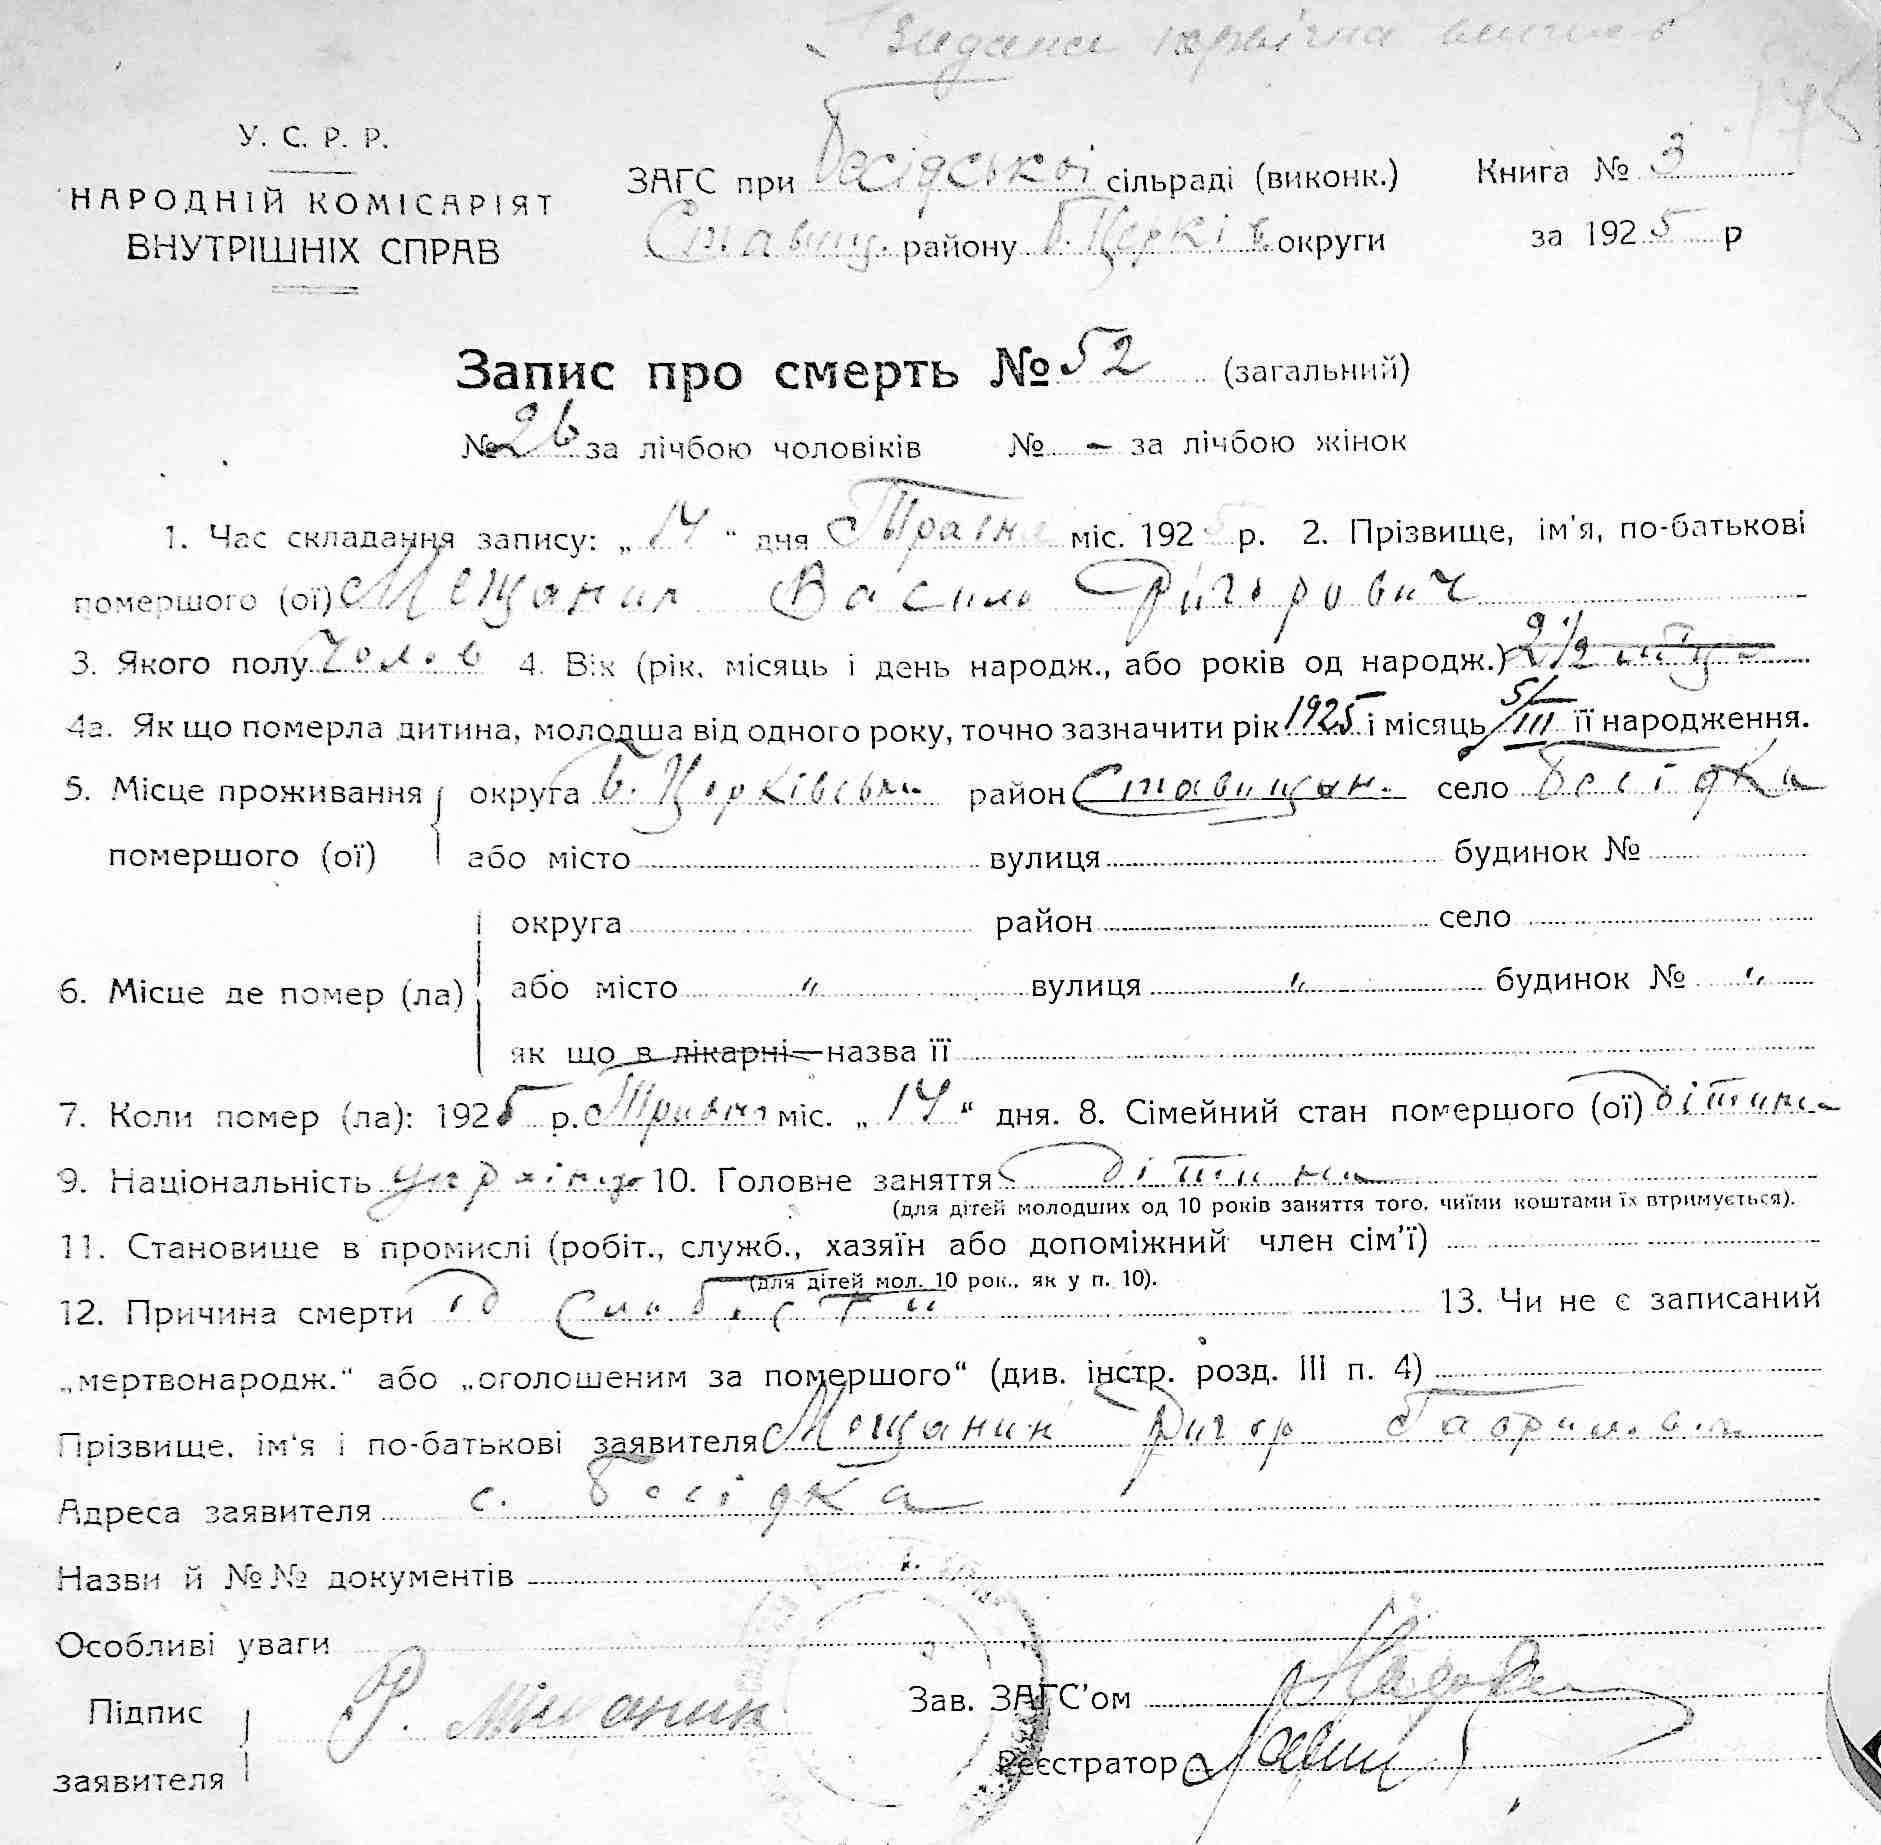 Видана
У. С. Р. Р.
НАРОДНІЙ КОМІСАРІЯТ
ВНУТРІШНІХ СПРАВ
ЗАГС при Бесідській сільраді (виконк.)
Ставищ. району Б. Церків. округи
Книга № 3
за 1925 р
Запис про смерть № 52 (загальний)
№ 26 за лічбою чоловіків № – за лічбою жінок
1. Час складання запису: „14“ дня Травня міс. 1925 р. 2. Прізвище, ім'я, по-батькові
помершого (ої) Мещанин Василь Григорович
3. Якого полу Чолов 4. Вік (рік, місяць і день народж., або років од народж.) 2 1/2
4а. Як що померла дитина, молодша від одного року, точно зазначити рік 1925 і місяць 5/III її народження.
5. Місце проживання помершого (ої) округа Б. Церківськ район Ставищан. село Бесідка
або місто вулиця будинок №
6. Місце де помер (ла) округа район село
або місто " вулиця " будинок № "
як що в лікарні–назва її
7. Коли помер (ла): 1925 р. Травня міс. „14“ дня. 8. Сімейний стан помершого (ої) дітина
9. Національність україн. 10. Головне заняття дітина
(для дітей молодших од 10 років заняття того, чиїми коштами їх втримується).
11. Становище в промислі (робіт., служб., хазяїн або допоміжний член сім'ї)
(для дітей мол. 10 рок., як у п. 10).
12. Причина смерти од слабости 13. Чи не є записаний
„мертвонародж.“ або „оголошеним за помершого“ (див. інстр. розд. III п. 4)
Прізвище, ім'я і по-батькові заявителя Мещанин Григор Гаврилович
Адреса заявителя с. Бесідка
Назви й №№ документів
Особливі уваги
Підпис заявителя Г.
Зав. ЗАГС'ом
Реєстратор